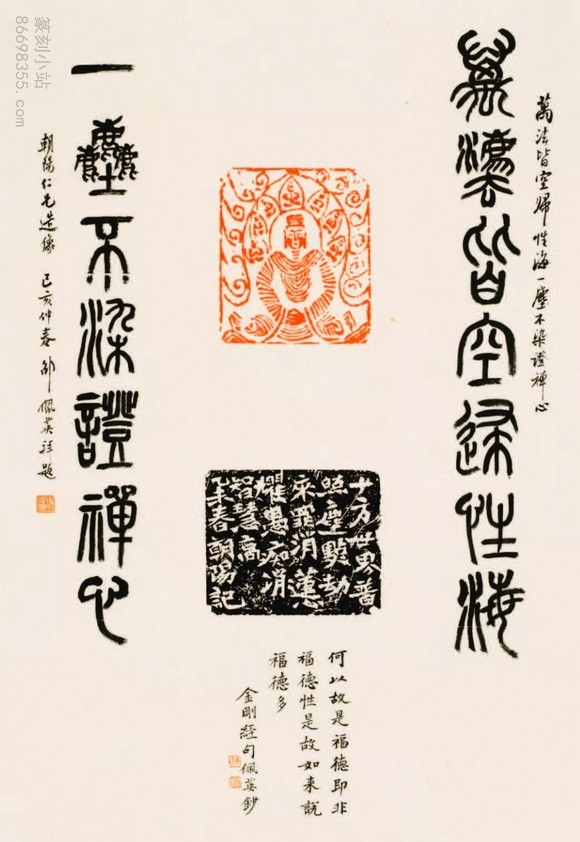 萬法皆空歸性海一塵不染證禪心
萬灋皆空歸性海
一塵不染證禪心
朝陽仁兄造像 己亥仲春邵佩英拜題
十方世界普
照塵點劫
來罪消慧
耀愚痴消
智慧高
乙未春朝陽記
何以故是福德即非
福德性是故如來説
福德多
金剛經句佩英鈔
篆刻小站
86698355.com